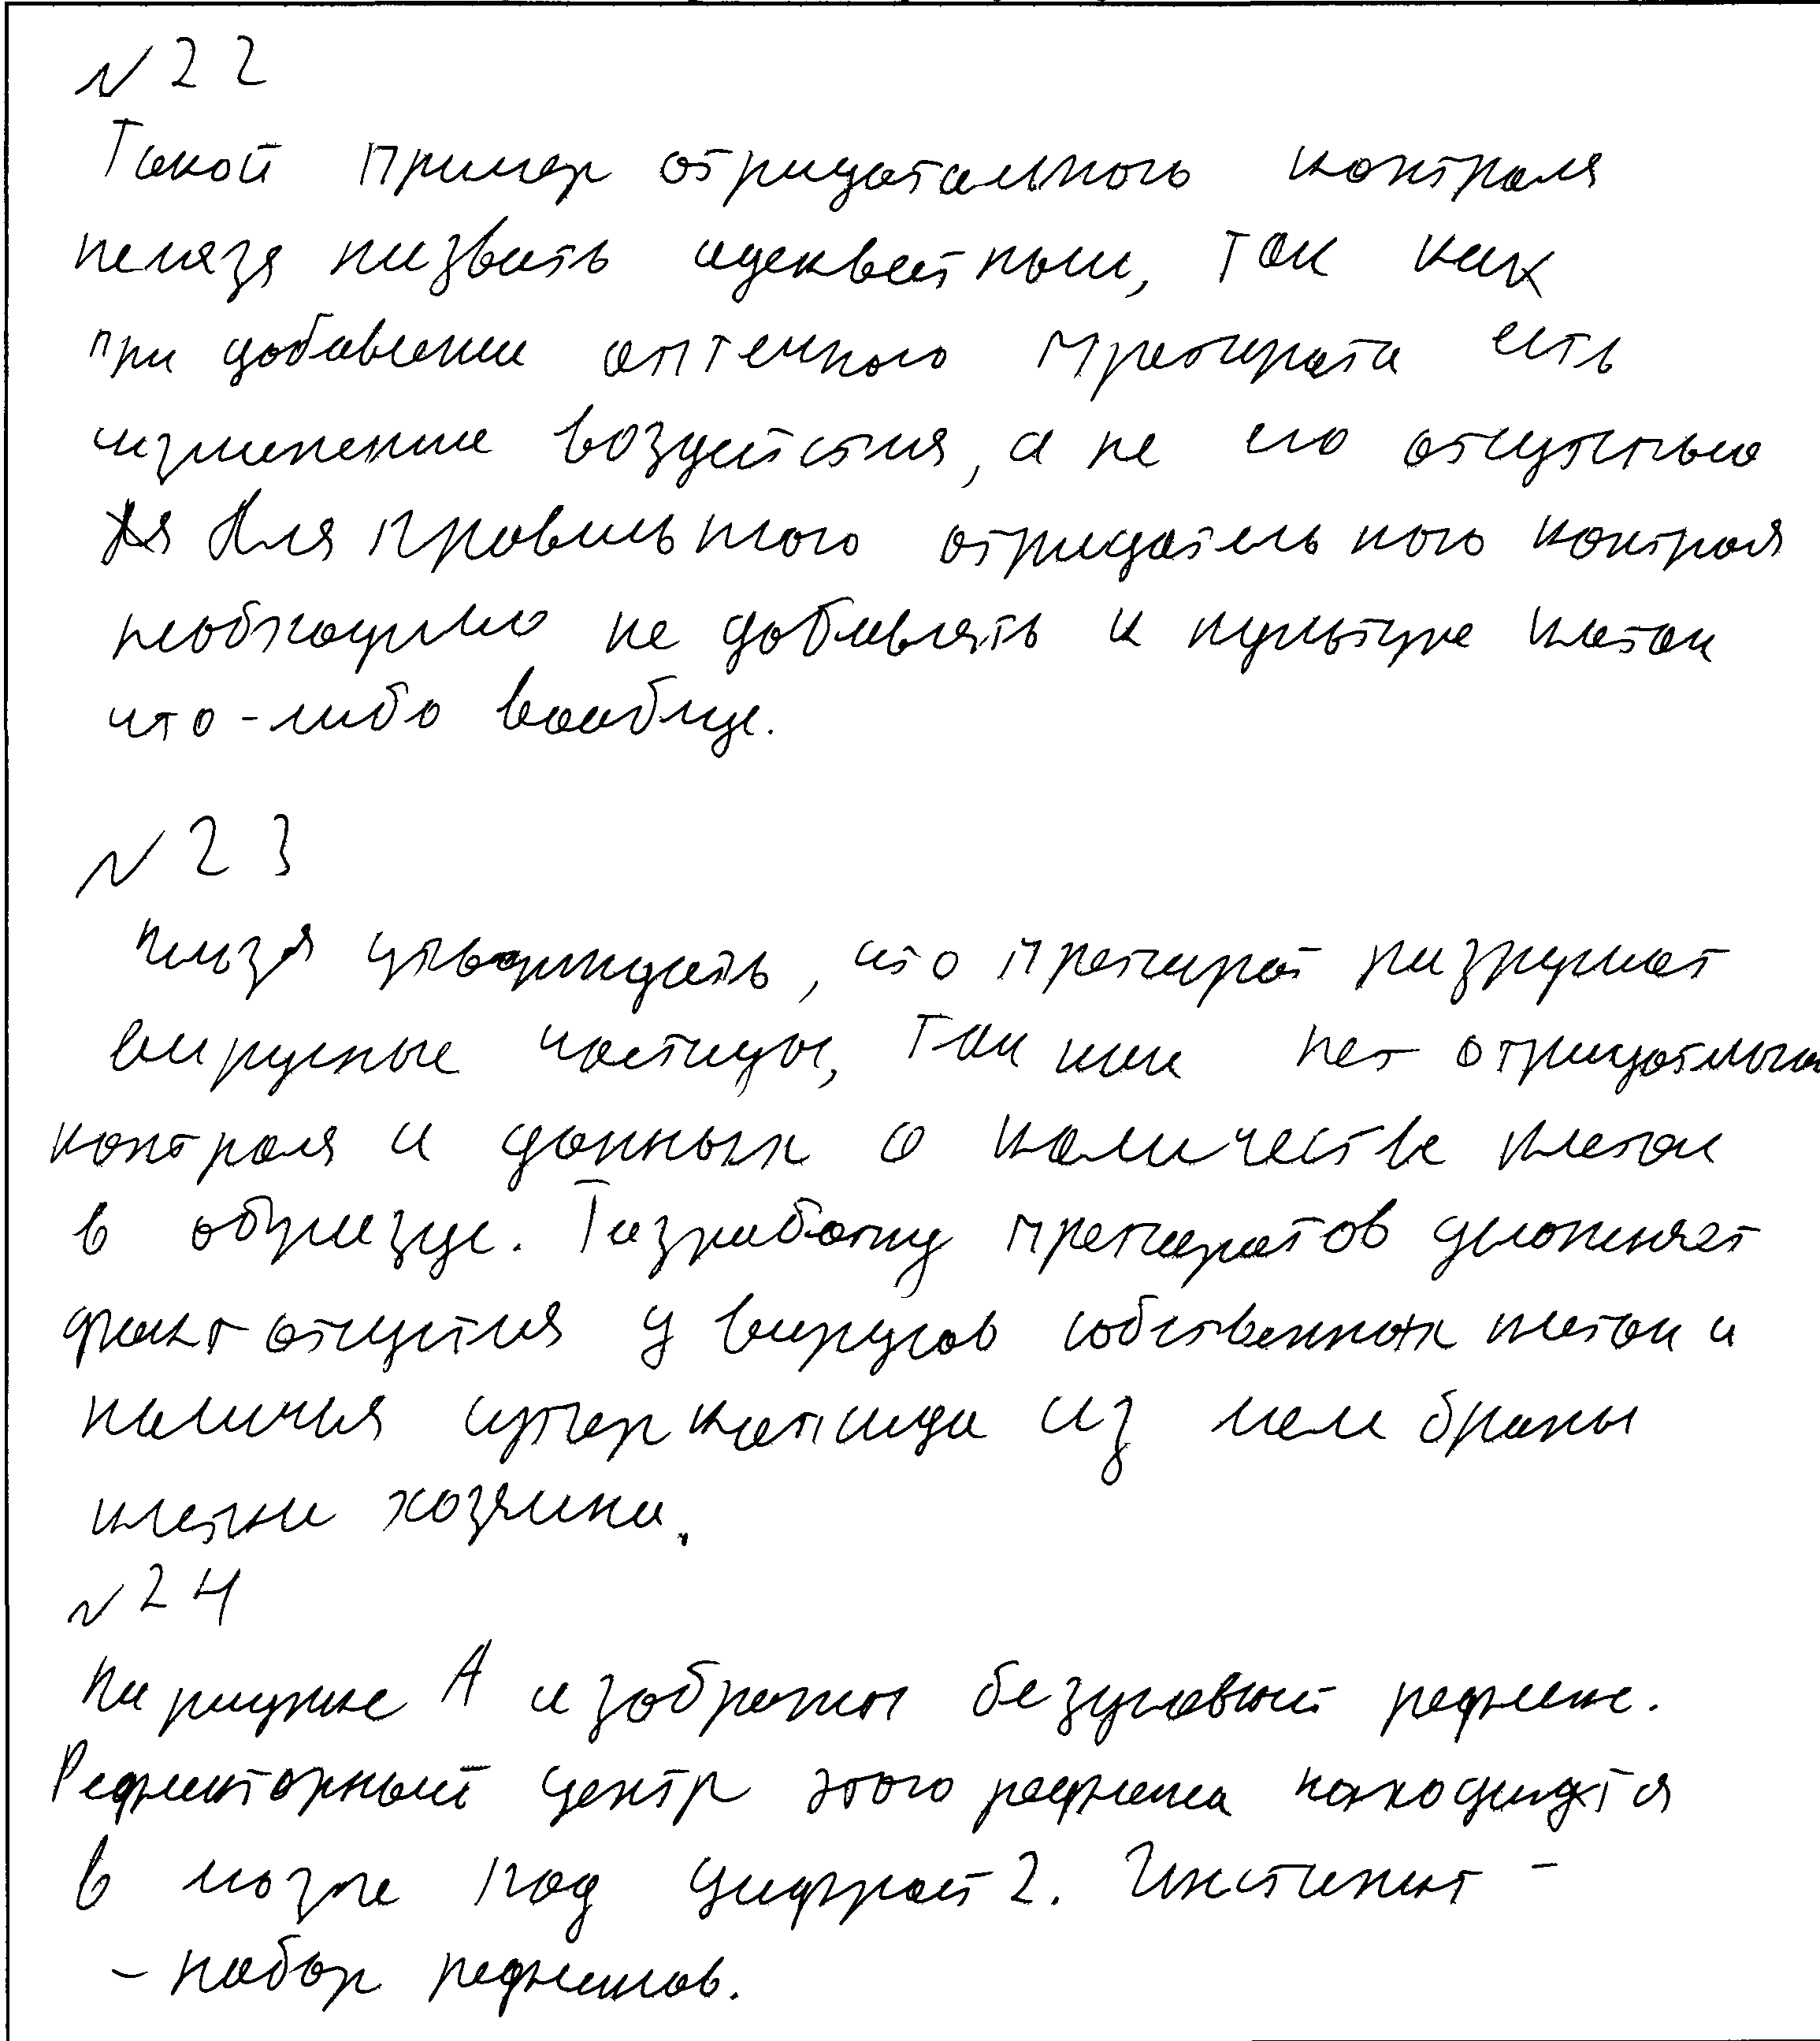 № 22
Такой пример отрицательного контроля
нельзя назвать адекватным, так как
при добавлении аптечного препарата есть
изменение воздействия, а не его отсутствие
Для правильного отрицательного контроля
необходимо не добавлять к культуре клеток
что-либо вообще.
№ 23
Нельзя утверждать, что препарат разрушает
вирусные частицы, так как нет отрицательного
контроля и данных о количестве клеток
в образце. Разработку препаратов усложняет
факт отсутствия у вирусов собственных клеток и
наличия суперкапсида из мембраны
клетки хозяина.
№ 24
На рисунке А изображён безусловный рефлекс.
Рефлекторный центр этого рефлекса находится
в мозге под цифрой 2. Инстинкт –
– набор рефлексов.